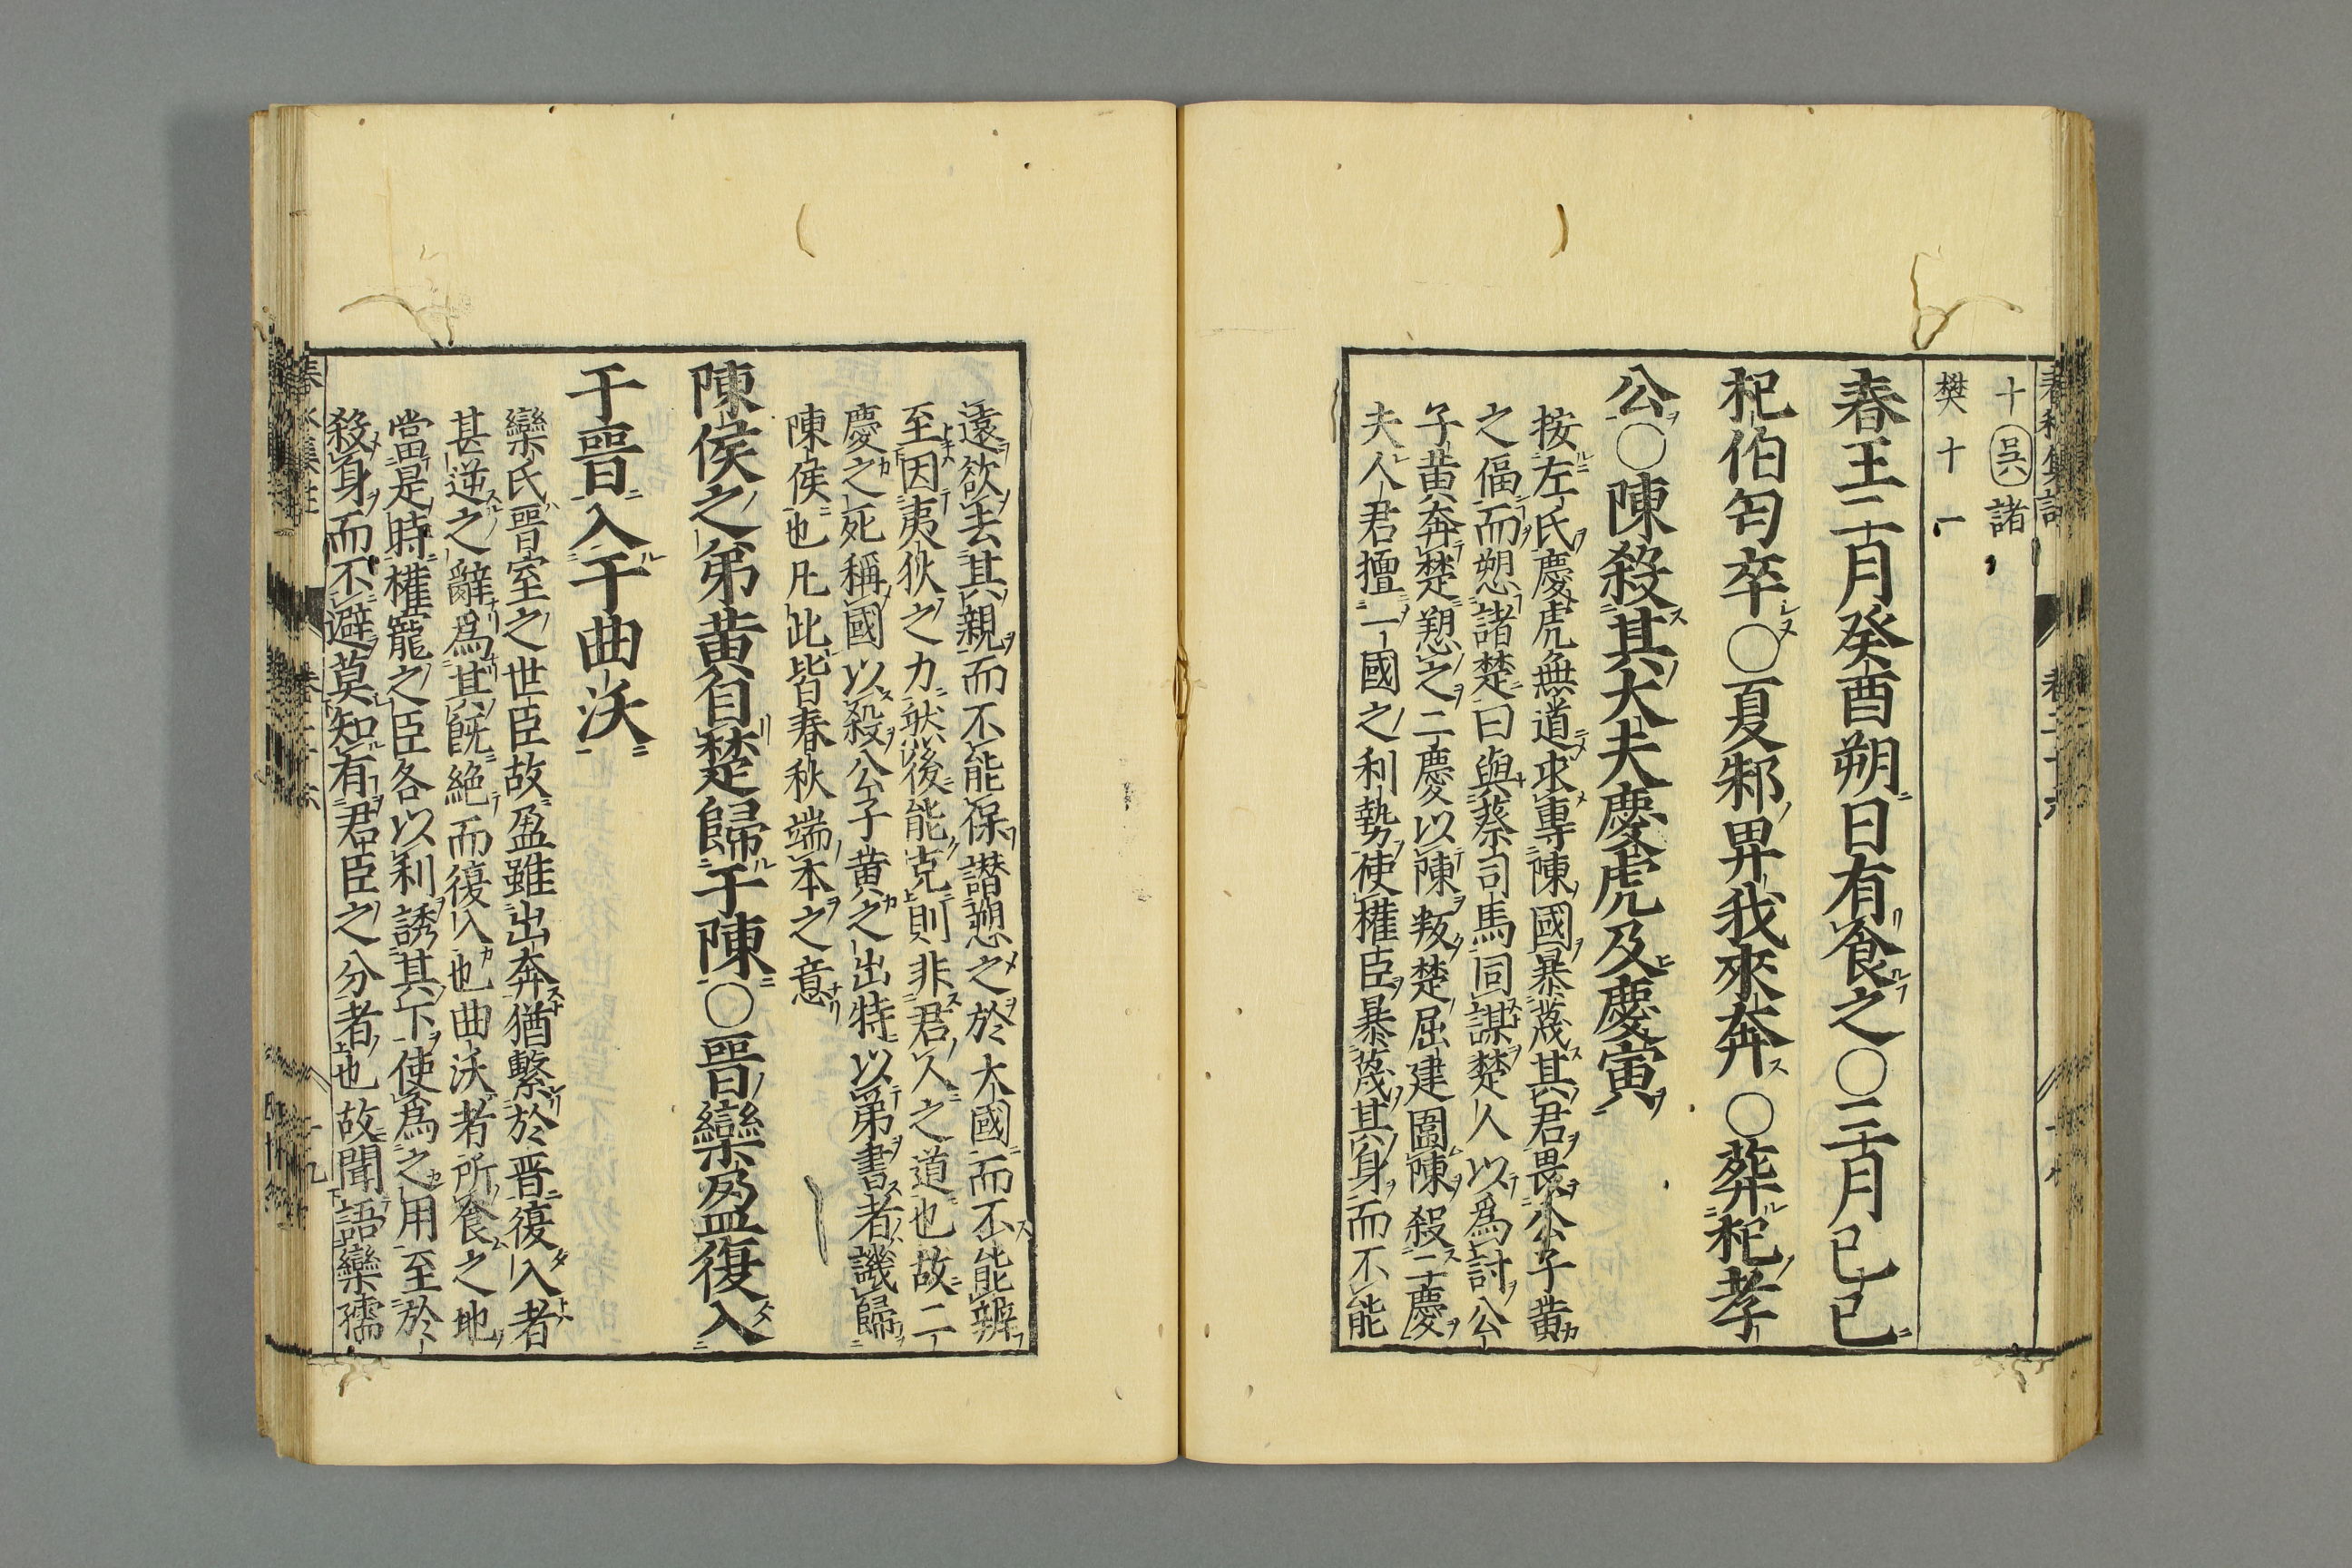 十吳諸
樊十一
春王二月癸酉朔日有食之〇三月己巳
杞伯匄卒〇夏邾畀我來奔〇葬杞孝
公〇陳殺其大夫慶虎及慶寅
按左氏慶虎無道求專陳國暴蔑其君畏公子黃
之偪而愬諸楚曰與蔡司馬同謀楚人以爲討公
子黃奔楚愬之二慶以陳叛楚屈建圍陳殺二慶
夫人君擅一國之利勢使權臣暴蔑其身而不能
遠欲去其親而不能保譖愬之於大國而不能辨
至因夷狄之力然後能克則非君人之道也故二
慶之死稱國以殺公子黃之出特以弟書者譏歸
陳侯也凡此皆春秋端本之意
陳侯之弟黃自楚歸于陳〇晉欒盈復入
于晉入于曲沃
欒氏晉室之世臣故盈雖出奔猶繫於晋復入者
甚逆之辭爲其旣絶而復入也曲沃者所食之地
當是時權寵之臣各以利誘其下使爲之用至於
殺身而不避莫知有君臣之分者也故聞語欒孺